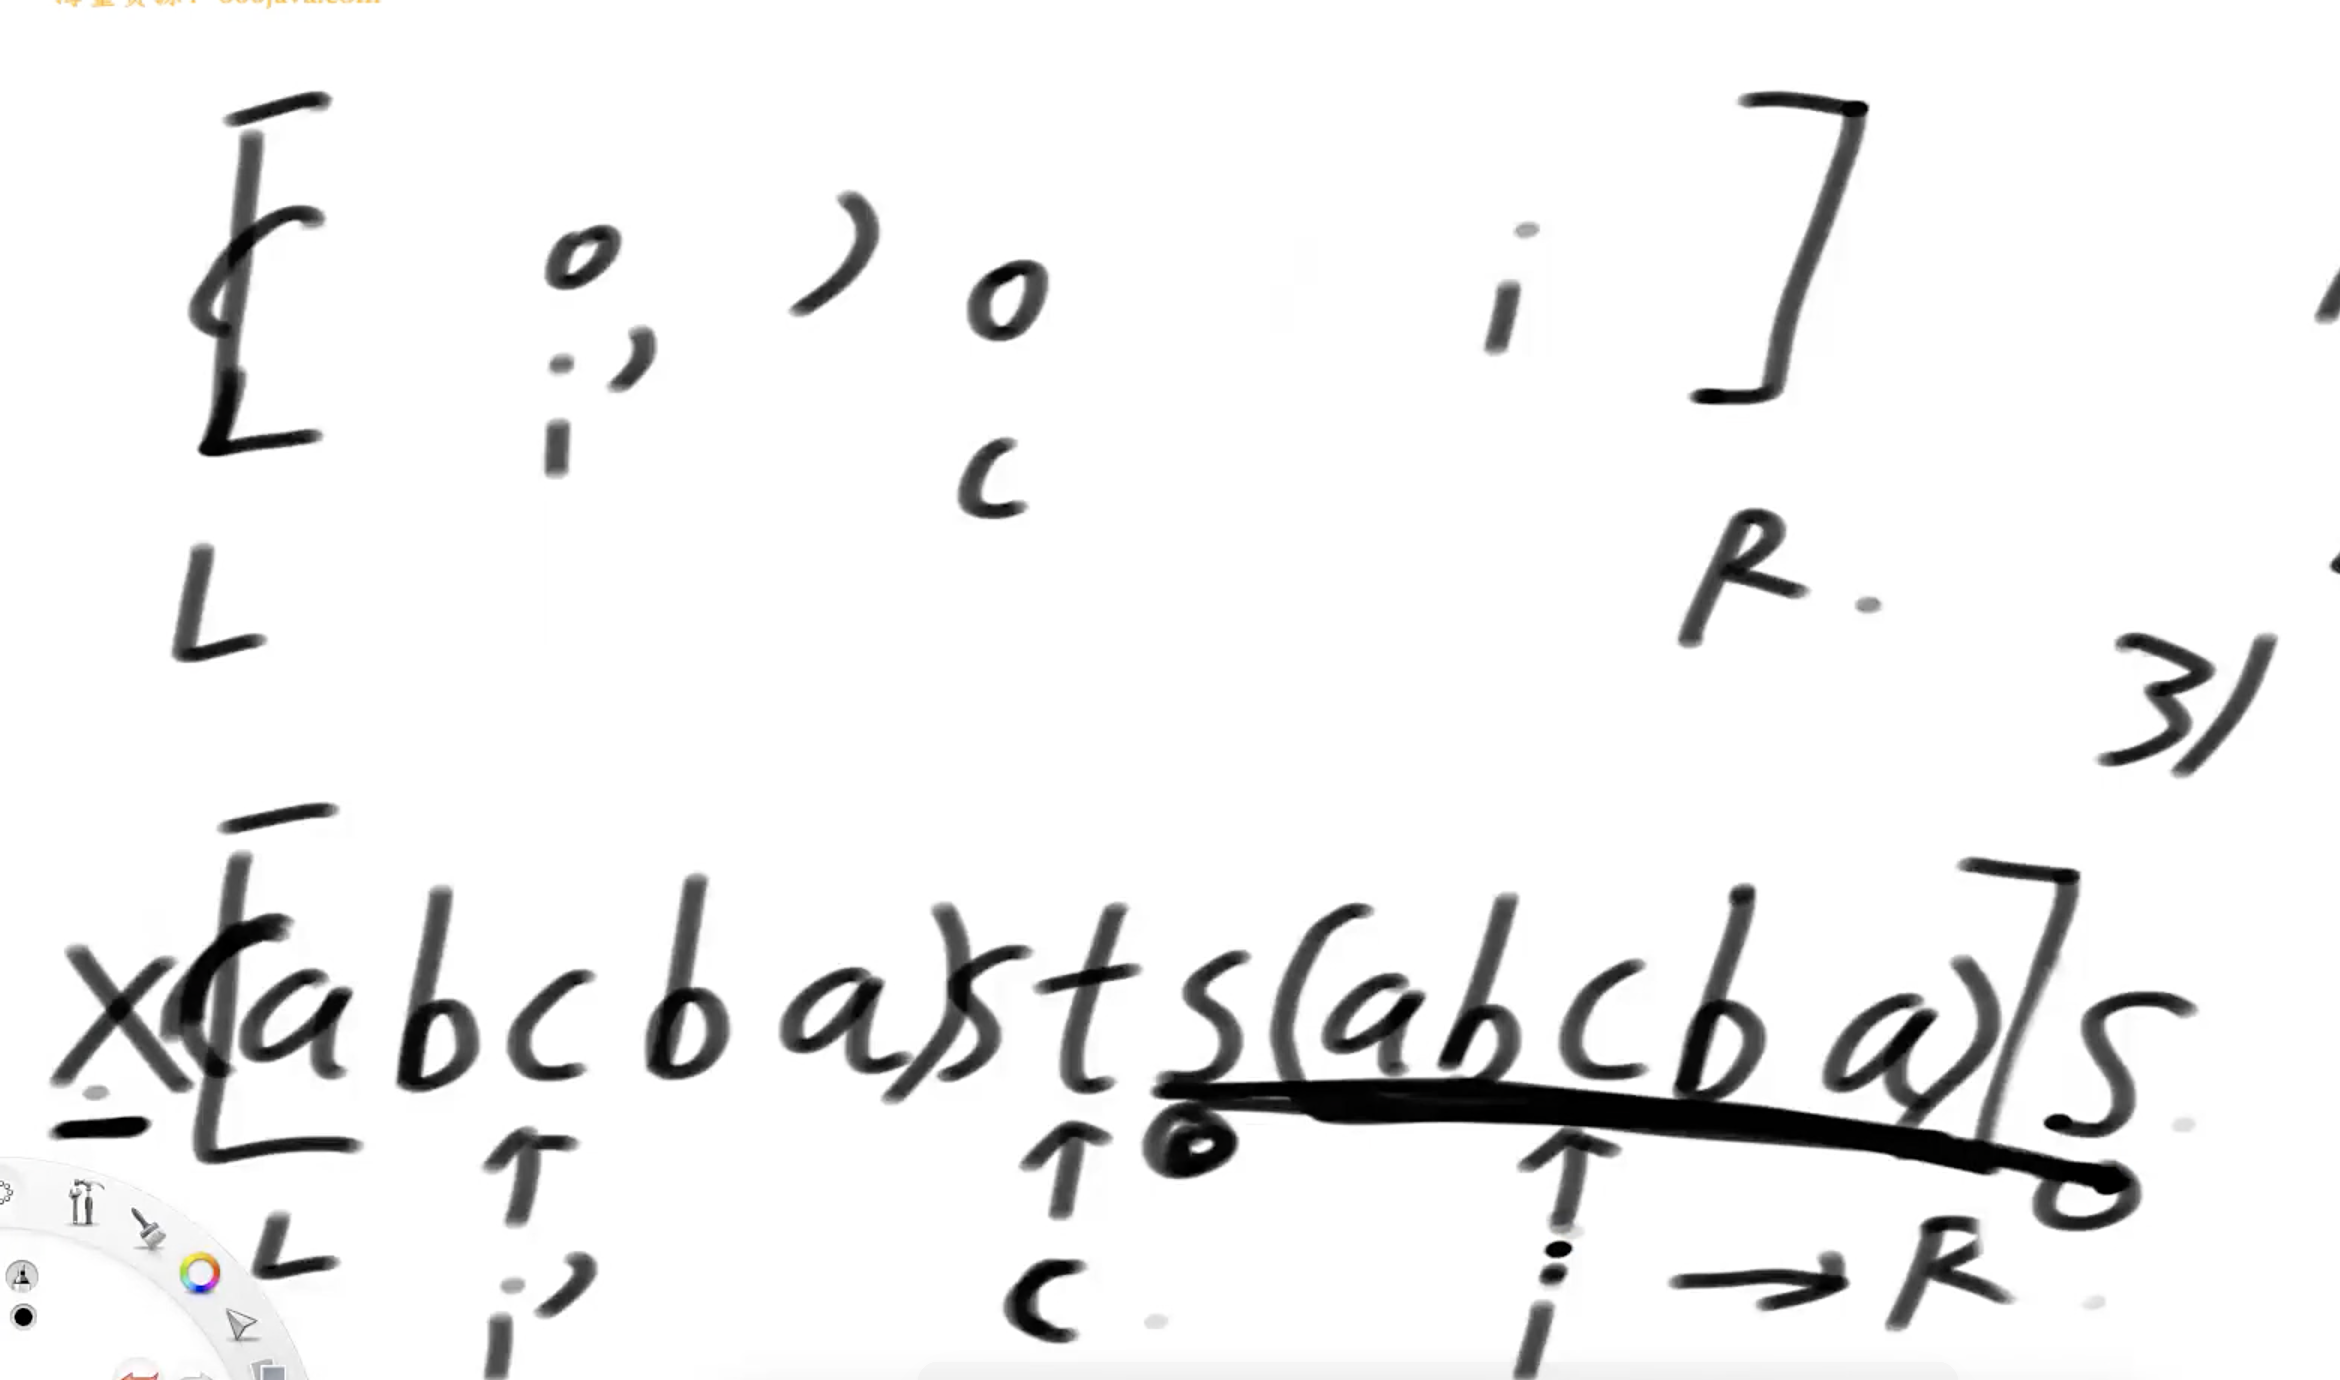 [ ( o ) o i ]
i'
C
L R.
3)
x [(abcba)sts(abcba)]s
↑ ↑ ↑
L i' C i → R